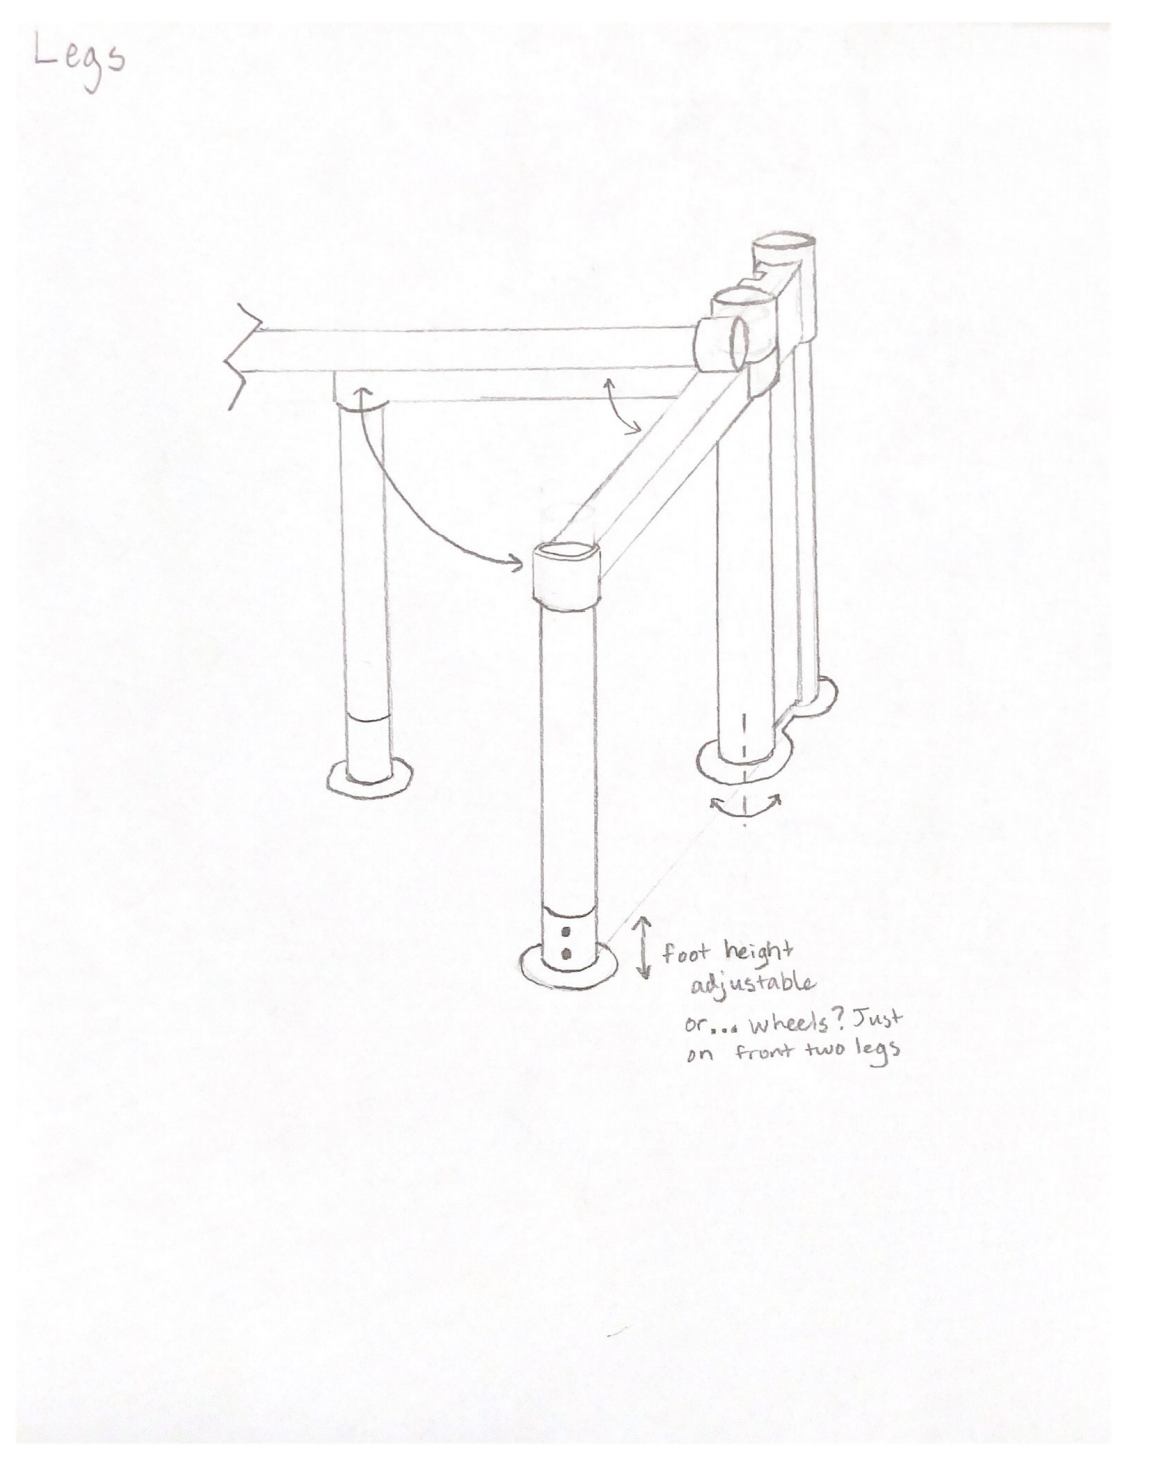 Legs
foot height
adjustable
or... wheels? Just
on front two legs